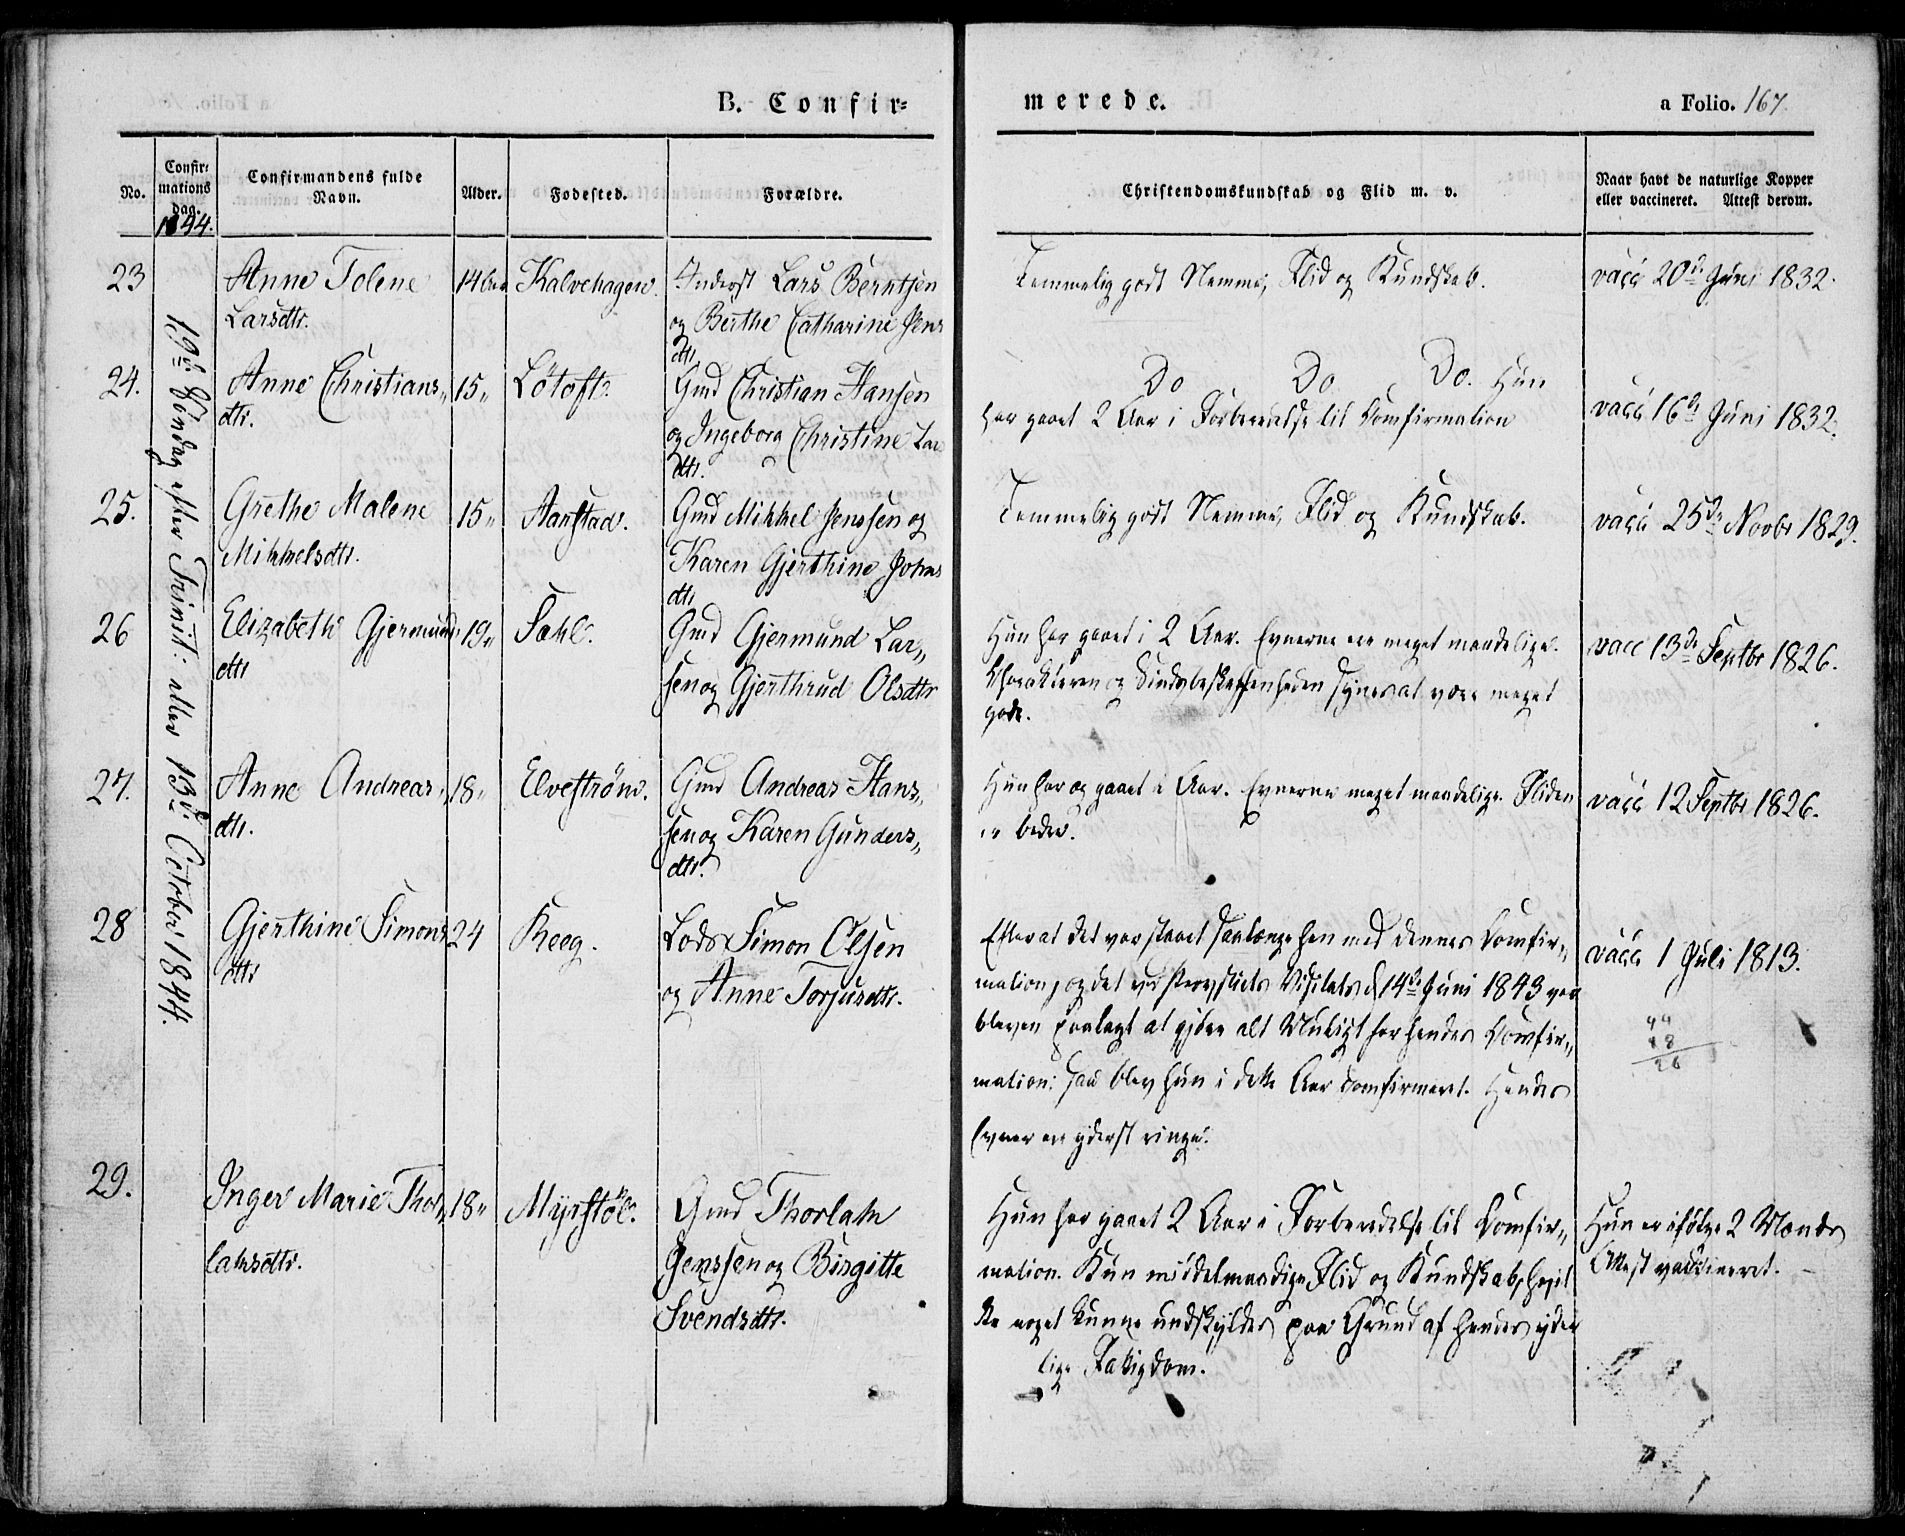 B. Confir=
merede.
a Folio. 167.
No.
Confir=
mations
dag.
1844.
Confirmandens fulde
Navn.
Alder.
Fodested.
Forældre.
Christendomskundskab og Flid m. v.
Naar havt de naturlige Kopper
eller vaccineret. Attest derom.
19de Søndag efter Trinit: eller 13de October 1844.
23
Anne Tolene
Larsdtr.
14
Kalvehagen.
Inderst Lars Berntsen
og Berthe Catharine Jens
dtr.
Temmelig godt Nemme, Flid og Kundskab.
vacc 20de Juni 1832.
24.
Anne Christians„
dtr.
15„
Løtoft.
Gmd Christian Hansen
og Ingeborg Christine Lars
dtr.
Do Do Do. Hun
har gaaet 2 Aar i Forberedelse til Confirmation
vacc 16de Juni 1832.
25.
Grethe Malene
Mikkelsdtr.
15„
Aanstad.
Gmd Mikkel Jenssen og
Karen Gjerthine Johns
dtr.
Temmelig godt Nemme, Flid og Kundskab.
vacc 25de Novbr 1829.
26
Elizabeth Gjermunds
dtr
19„
Sahl.
Gmd Gjermund Lar„
sen og Gjerthrud Olsdtr
Hun har gaaet i 2 Aar. Evnerne ere meget maadelige.
Charakteren og Sindsbeskaffenheden synes at være meget
gode.
vacc 13de Septbr 1826.
27.
Anne Andreas„
dtr.
18„
Elvestrøm.
Gmd Andreas Hans„
sen og Karen Gunders„
dtr.
Hun har og gaaet i Aar. Evnerne meget maadelige. Fliden
er bedre.
vacc 12 Septbr 1826.
28
Gjerthine Simons
dtr
24
Keeg.
Lods Simon Olsen
og Anne Torjusdtr.
Efterat det var staaet saalænge hen med dennes Confir„
mation, og det ved Provstiets Visitats d 14de Juni 1843 var
bleven paalagt at gjøre alt Muligt for hendes Confir„
mation: saa blev hun i dette Aar confirmeret. Hendes
Evner ere yderst ringe.
vacc 1 Juli 1813.
44
18
26
29.
Inger Marie Thor„
laksdtr.
18„
Myrstøl.
Gmd Thorlak
Jenssen og Birgitte
Svendsdtr.
Hun har gaaet 2 Aar i Forberedelse til Confir„
mation. Kun middelmaadige Flid og Kundskab, hvil
ke noget kunne undskyldes paa Grund af hendes yder
lige Fattigdom.
Hun er ifølge 2 Mænds
Attest vaccineret.